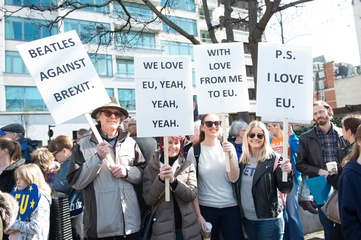 BEATLES
AGAINST
BREXIT.
WE LOVE
EU, YEAH,
YEAH,
YEAH.
WITH
LOVE
FROM ME
TO EU.
P.S.
I LOVE
EU.
EU